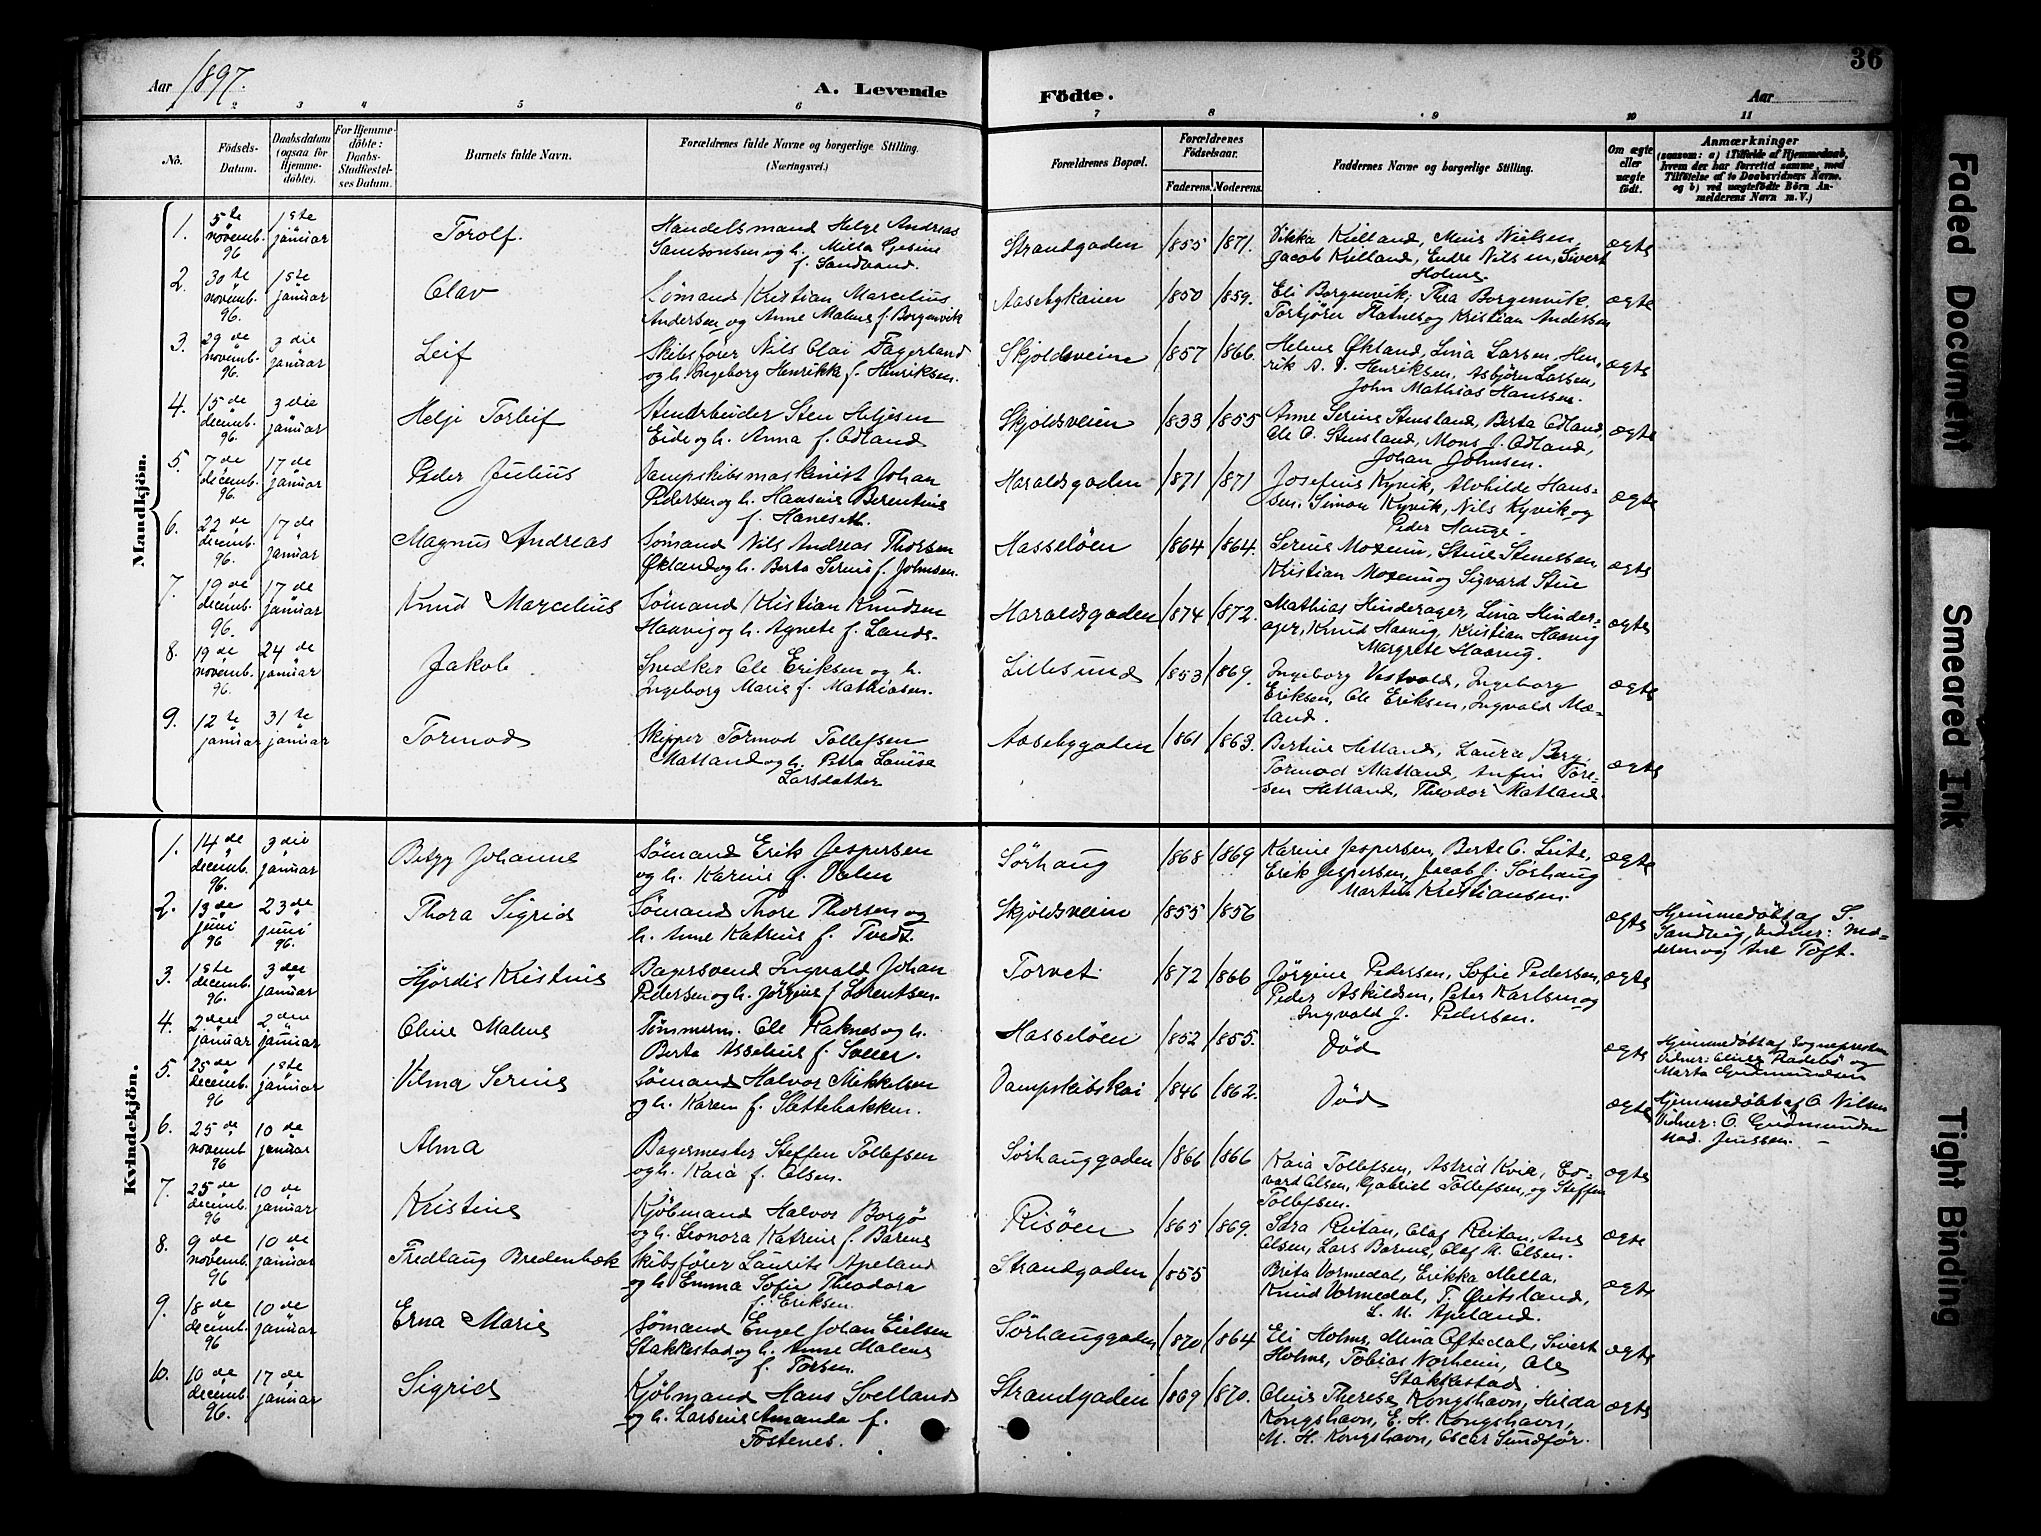 36
Aar 1897.
A. Levende
Födte.
Aar
1 2 3 4 5 6
7 8 9 10 11
No.
Födsels-Datum.
Daabsdatum (ogsaa for Hjemme-döbte).
For Hjemme-döbte: Daabs-Stadfæstel-ses Datum.
Barnets fulde Navn.
Forældrenes fulde Navne og borgerlige Stilling.
(Næringsvei.)
Forældrenes Bopæl.
Forældrenes Födselsaar.
Faderens. Moderens.
Faddernes Navne og borgerlige Stilling.
Om ægte eller uægte födt.
Anmærkninger
(saasom: a) i Tilfælde af Hjemmedaab,
hvem der har forrettet samme, med
Tilföielse af to Daabsvidners Navne,
og b) ved uægtefödte Börn An-
melderens Navn m. V.)
Mandkjön.
1. 5te novemb. 96 1ste januar Torolf. Handelsmand Helge Andreas
Samsonsen og h. Milla Gesine
f. Sandvand.
Strandgaden 1855 1871. Vikka Kielland, Mina Nielsen,
Jacob Kielland, Endre Nilsen, Sivert
Holme
ægte
2. 30te novemb. 96. 1ste januar Olav Sømand Kristian Marcelius
Andersen og Anne Malene f. Borgenvik
Aasebykaien 1850 1859. Eli Borgenvik, Thea Borgenvik,
Torbjörn Flatnes og Kristian Andersen
ægte
3. 29de novemb. 96. 3die januar Leif Skibsfører Nils Olai Fagerland
og h. Ingeborg Henrikka f. Henriksen.
Skjoldsveien 1857 1866. Helene Økland, Lina Larsen, Hen-
rik A. J. Henriksen, Asbjörn Larsen,
John Mathias Hanssen.
ægte
4. 15de decemb. 96 3die januar Helje Torleif Stenarbeider Sten Heljesen
Eide og h. Anna f. Odland
Skjoldsveien 1833 1855 Anne Serine Stensland, Berta Odland,
Ole O. Stensland, Mons J. Odland,
Johan Johnsen.
ægte
5. 7de decemb. 96. 17de januar Peder Julius Dampskibsmaskinist Johan
Pedersen og h. Hansine Berentine
f. Haneseth.
Haraldsgaden 1871 1871 Josefine Kyvik, Alvhilde Hans-
sen, Simon Kyvik, Nils Kyvik og
Peder Hauge.
ægte
6. 22de decemb. 96. 17de januar Magnus Andreas Sømand Nils Andreas Thorsen
Økland og h. Berta Serine f. Johnsen.
Hasseløen 1864 1864. Serine Moxeim, Stine Stenessen
Kristian Moxeim og Sigvard Stene
ægte
7. 19de decemb. 96. 17de januar Knud Marcelius Sømand Kristian Knudsen
Haavig og h. Agnete f. Lande.
Haraldsgaden 1874 1872. Mathias Hinderager, Lina Hinder-
ager, Knud Haavig, Kristian Haavig
Margrete Haavig.
ægte
8. 19de novemb. 96. 24de januar Jakob Snedker Ole Eriksen og h.
Ingeborg Marie f. Mathiasen.
Lillesund 1853 1869. Ingeborg Vestvold, Ingeborg
Eriksen, Ole Eriksen, Ingvald Mæ-
land.
ægte
9. 12te januar 31te januar Tormod Skipper Tormod Tollefsen
Matland og h. Petra Louise
Larsdatter
Aasebygaden 1861 1863. Bertine Hetland, Laura Berg,
Tormod Matland, Anfin Tore-
sen Hetland, Theodor Matland.
ægte
Kvindekjön.
1. 14de decemb. 96. 3die januar Betzy Johanne Sømand Erik Jespersen
og h. Karine f. Dalen
Sørhaug 1868 1869 Karine Jespersen, Berte O. Leite,
Erik Jespersen, Jacob J. Sørhaug
Martin Kristiansen.
ægte
2. 13de juni 96 23de juni 96. Thora Sigrid Sømand Thore Thorsen og
h. Anne Katrine f. Tvedt.
Skjoldsveien 1855 1856
ægte Hjemmedöbt af S.
Sandvig, Vidner: Mo-
deren og Ane Toft.
3. 1ste decemb. 96. 3die januar Hjördis Kristine Bagersvend Ingvald Johan
Pedersen og h. Jörgine f. Lorentsen.
Torvet 1872 1866 Jörgine Pedersen, Sofie Pedersen,
Peder Askildsen, Peter Karlsen og
Ingvald J. Pedersen.
ægte
4. 2den januar 2den januar Oline Malene Tømmerm. Ole Raknes og h.
Berta Asseline f.
Hasseløen 1852 1855. Död ægte Hjemmedöbt af Sognepresten
Vidner: og
Marta Gudmundsen
5. 25de decemb. 96 1ste januar Vilma Serine Sømand Halvor Mikkelsen
og h. Karen f. Slettebakken.
Dampskibskai 1846 1862. Död ægte Hjemmedöbt af O. Nilsen
Vidner: O. Gudmundsen
Mad. Jenssen.
6. 25de novemb. 96 10de januar Alma Bagermester Steffen Tollefsen
og h. Kaia f. Olsen.
Sörhauggaden 1866 1866 Kaia Tollefsen, Astrid Kvie, Ed-
vard Olsen, Gabriel Tollefsen, og Steffen
Tollefsen.
ægte
7. 25de decemb. 96 10de januar Kristine Kjöbmand Halvor Borgö
og h. Leonora Katrine f. Barene
Risöen 1865 1869. Sara Reitan, Olaf Reitan, Ane
Olsen, Lars Barene, Olaf M. Olsen.
ægte
8. 9de novemb. 96 10de januar Fredlaug Bredenbæk Skibsfører Laurits Apeland
og h. Emma Sofie Theodora
f. Eriksen.
Strandgaden 1855 Brita Vormedal, Erikka Mella,
Knud Vormedal, T. Öritsland,
L. M. Apeland.
ægte
9. 18de decemb. 96 10de januar Erna Marie Sømand Engel Johan Eielsen
Stakkestad og h. Anne Malene
f. Torsen.
Sörhauggaden 1870 1864 Eli Holme, Mina Oftedal, Sivert
Holme, Tobias Norheim, Ole
Stakkestad
ægte
10. 10de decemb. 96. 17de januar Sigrid Kjöbmand Hans Svelland
og h. Larsine Amanda f.
Tostenes.
Strandgaden 1869 1870. Oline Therese Kongshavn, Hilda
Kongshavn, E. H. Kongshavn,
M. H. Kongshavn, Oscar Sundför.
ægte
Faded Document
Smeared Ink
Tight Binding